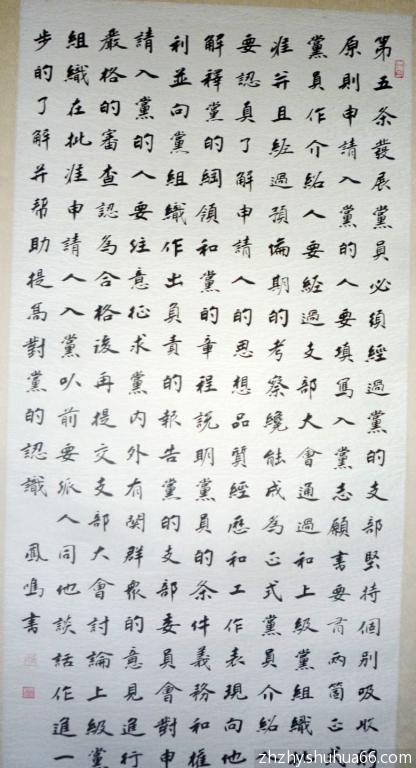 第五条發展黨員必須經過黨的支部堅持個別吸收
原則申請入黨的人要填寫入黨志願書要有兩箇正式
黨員作介紹人要經過支部大會通過和上級黨組織
准并且經過預備期的考察纔能成為正式黨員介紹
要認真了解申請人的思想品質經歷和工作表現向他
解釋黨的綱領和黨的章程說明黨員的条件義務和權
利並向黨組織作出負責的報告黨的支部委員會對申
請入黨的人要注意征求黨内外有関群眾的意見進行
嚴格的審查認為合格後再提交支部大會討論上級黨
組織在批准申請人入黨以前要派人同他談話作進一
步的了解并幫助提高對黨的認識 鳳鳴書
zhzhyshuhua66.com